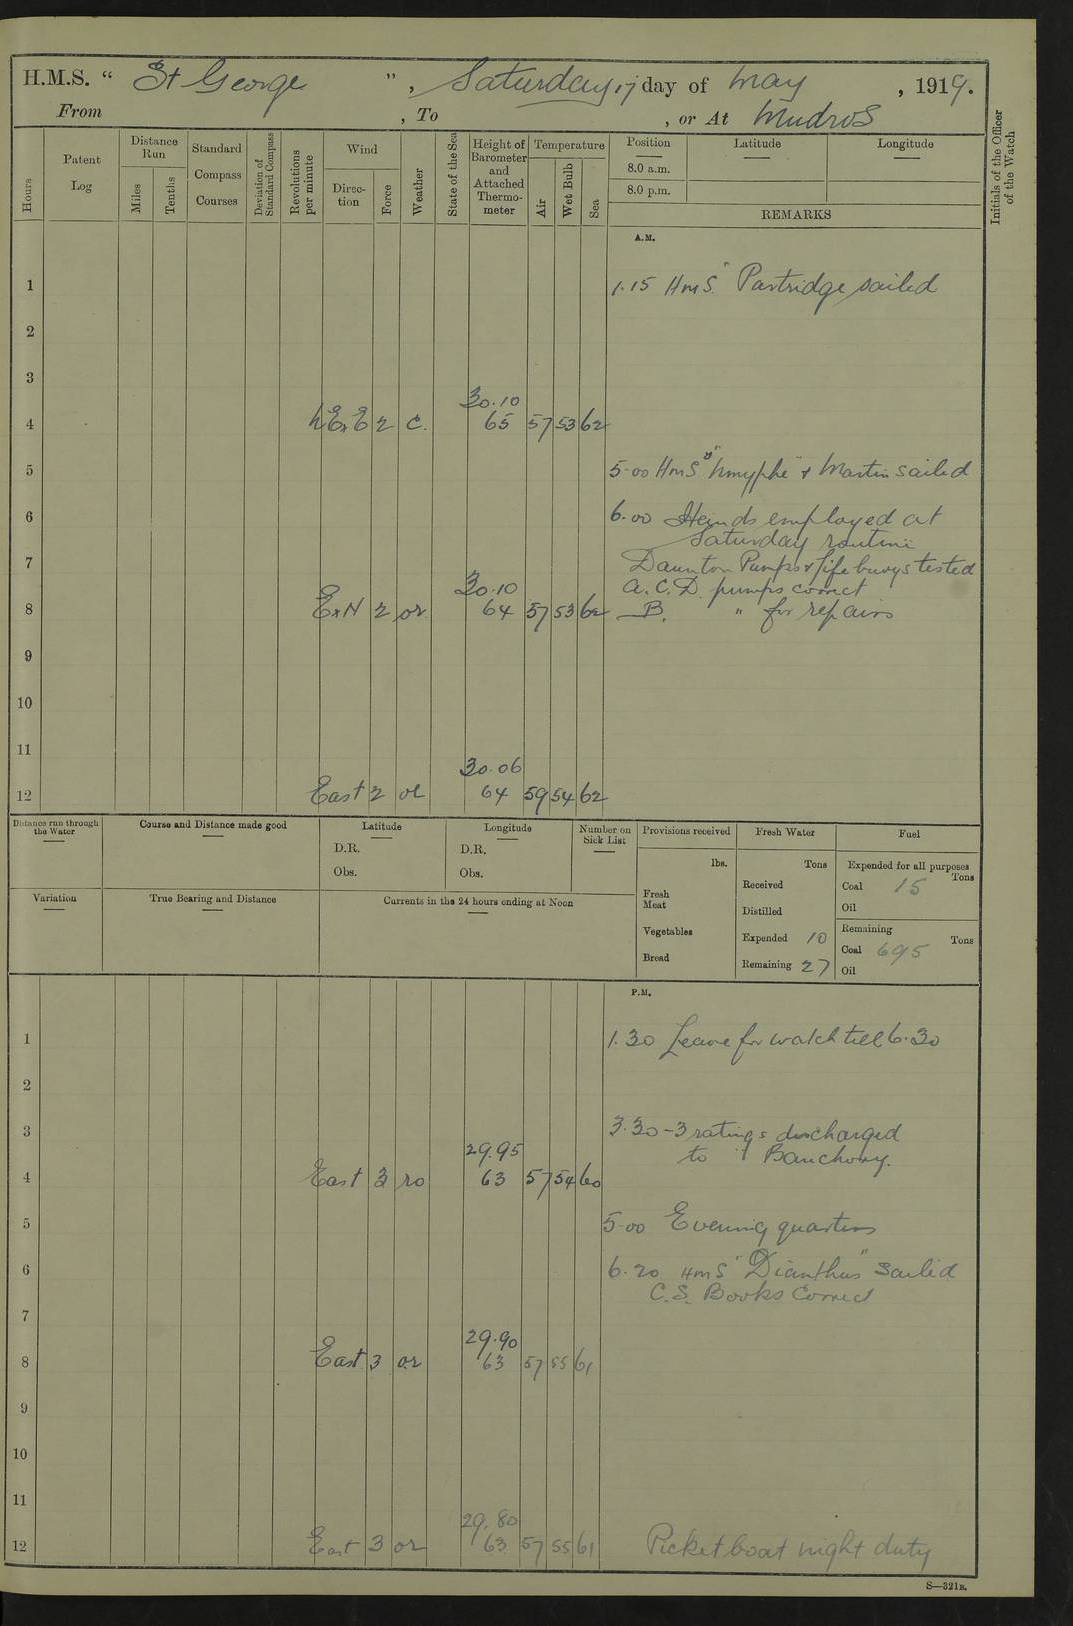 H.M.S. " St George ", Saturday 17 day of May, 1919.
From , To , or At Mudros
Hours
Patent Log
Distance Run
Miles
Tenths
Standard Compass Courses
Deviation of Standard Compass
Revolutions per minute
Wind
Direction
Force
Weather
State of the Sea
Height of Barometer and Attached Thermometer
Temperature
Air
Wet Bulb
Sea
Position
8.0 a.m.
8.0 p.m.
Latitude
Longitude
REMARKS
Initials of the Officer of the Watch
A.M.
1 1.15 HMS "Partridge sailed
2
3
30.10
4 2 c. 65 57 53 62
5 5.00 HMS & Martin sailed
6 6.00 Hands employed at
Saturday routine
7 Daunton Pumps & life buoys tested
30.10 A.C.D. pumps correct
8 ExN 2 or 64 57 53 62 B. " for repairs
9
10
11
30.06
12 East 2 64 59 54 62
Distance run through the Water
Course and Distance made good
Latitude
D.R.
Obs.
Longitude
D.R.
Obs.
Number on Sick List
Provisions received
lbs.
Fresh Meat
Vegetables
Bread
Fresh Water
Tons
Received
Distilled
Expended 10
Remaining 27
Fuel
Expended for all purposes
Tons
Coal 15
Oil
Remaining
Tons
Coal 695
Oil
Variation
True Bearing and Distance
Currents in the 24 hours ending at Noon
P.M.
1 1.30 Leave for watch till 6.30
2
3 3.30 - 3 ratings discharged
29.95 to Banchory.
4 East 3 ro 63 57 54 60
5 5.00 Evening quarters
6 6.20 HMS "Dianthus" sailed
C.S. Books Correct
7
29.90
8 East 3 or 63 57 55 61
9
10
11
29.80
12 East 3 or 63 57 55 61 Picket boat night duty
S—321E.